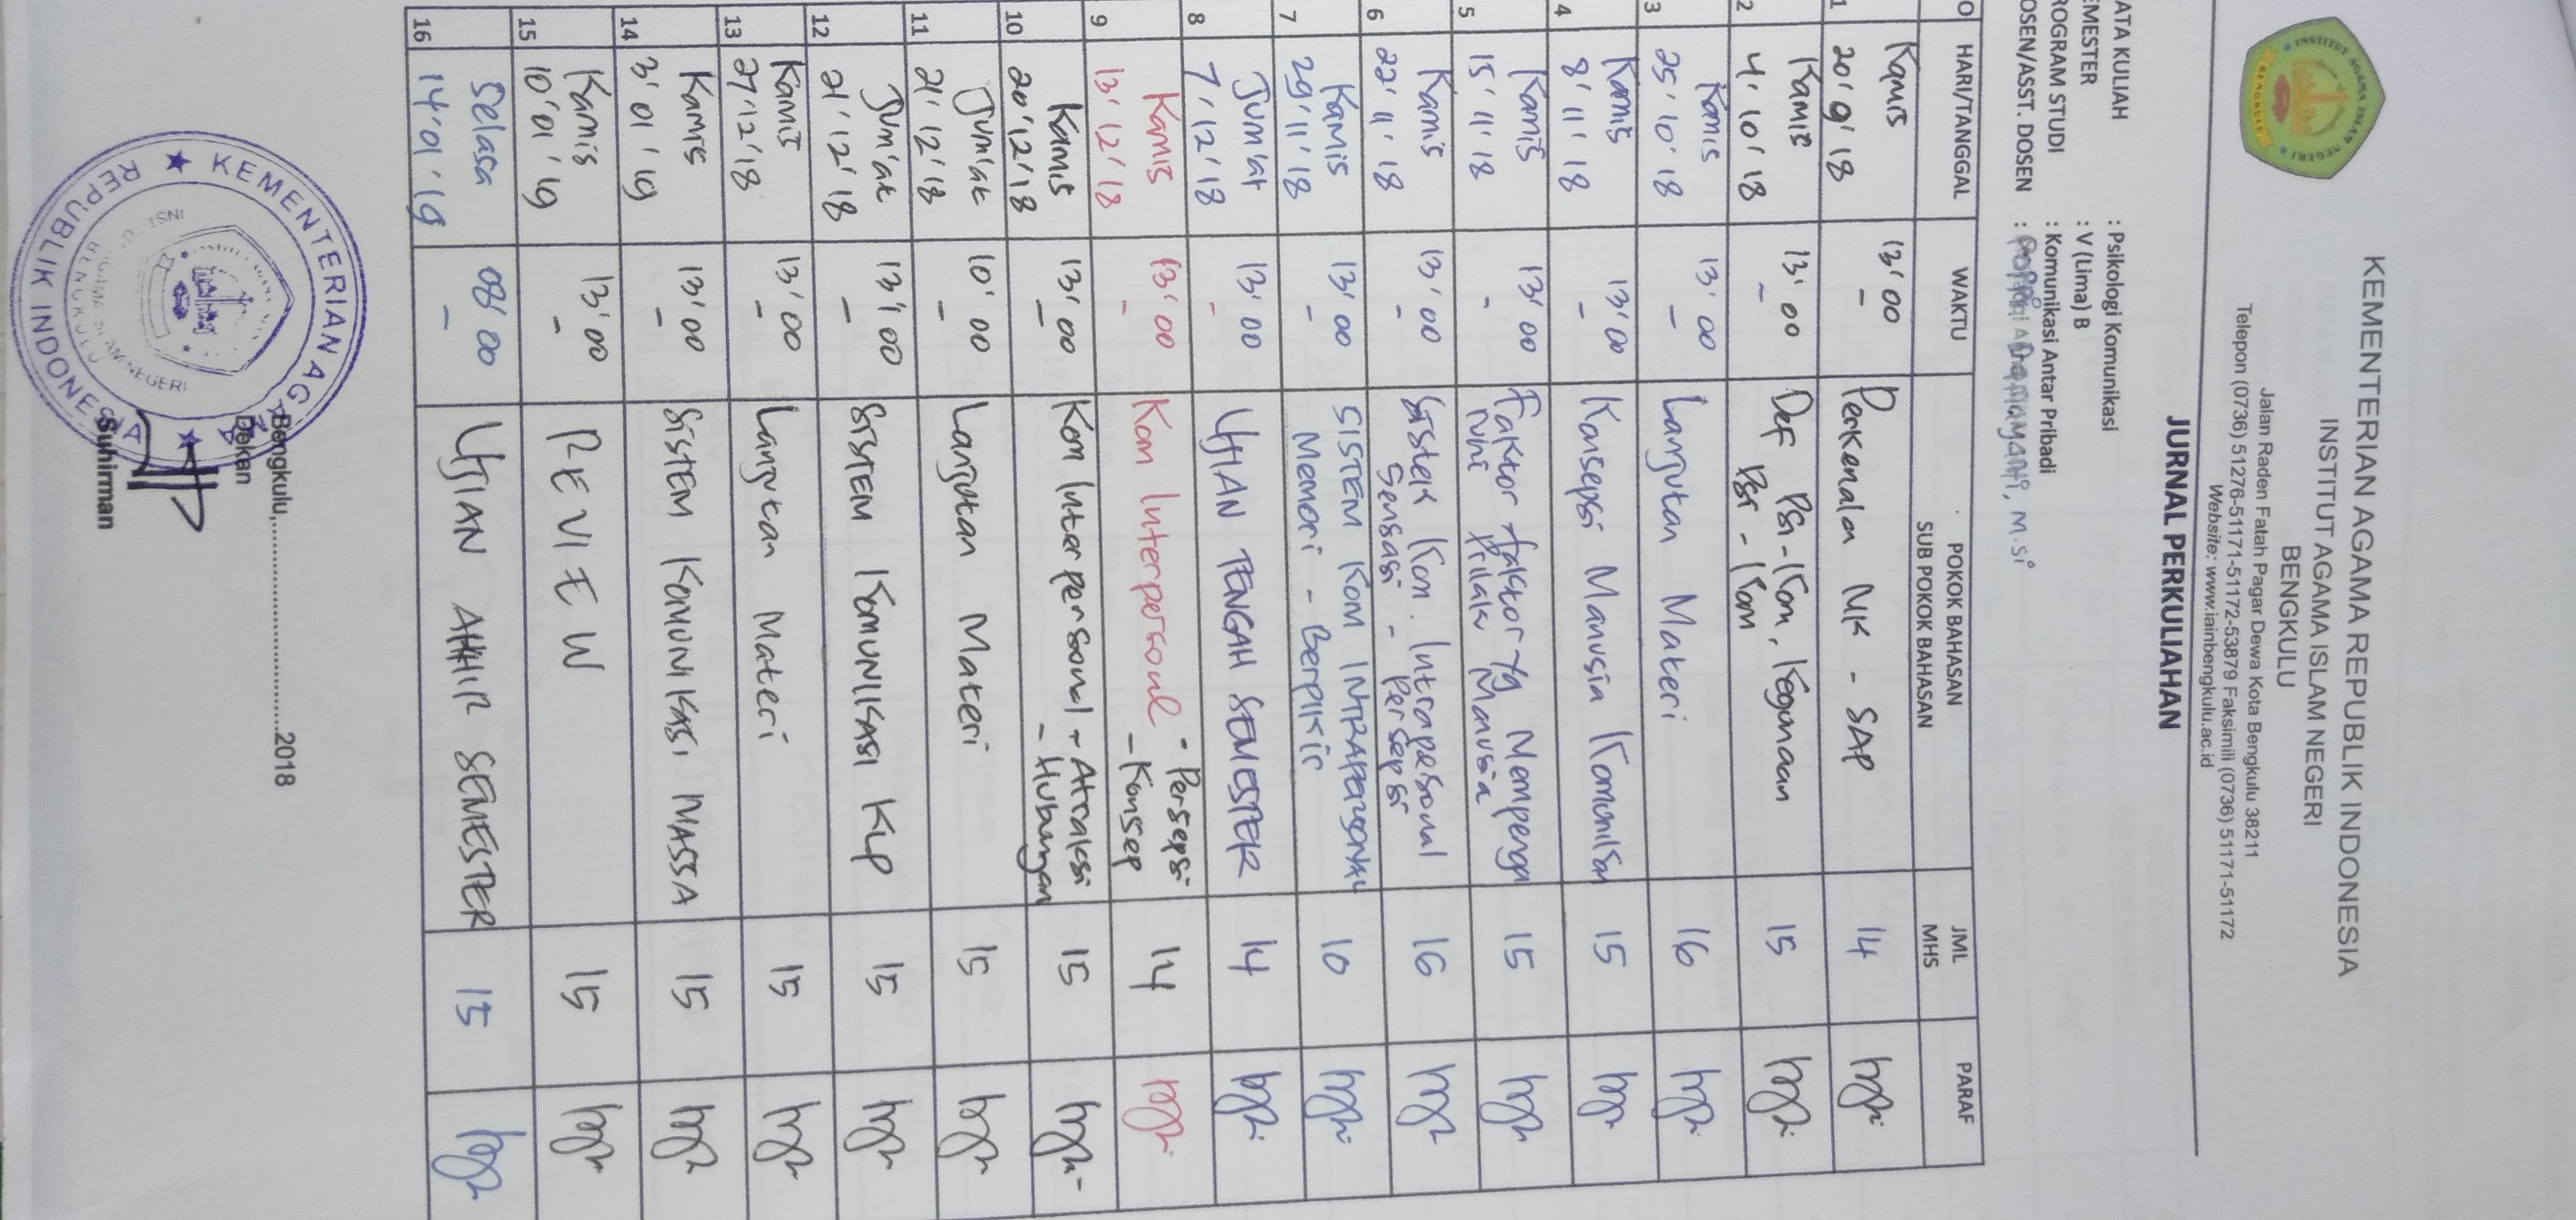 KEMENTERIAN AGAMA REPUBLIK INDONESIA
INSTITUT AGAMA ISLAM NEGERI
BENGKULU
Jalan Raden Fatah Pagar Dewa Kota Bengkulu 38211
Telepon (0736) 51276-51171-51172-53879 Faksimili (0736) 51171-51172
Website: www.iainbengkulu.ac.id
JURNAL PERKULIAHAN
ATA KULIAH : Psikologi Komunikasi
EMESTER : V (Lima) B
ROGRAM STUDI : Komunikasi Antar Pribadi
OSEN/ASST. DOSEN : M.Si
O HARI/TANGGAL WAKTU POKOK BAHASAN JML PARAF
SUB POKOK BAHASAN MHS
1 Kamis 13'00 Perkenalan MK - SAP 14
20'9'18 -
2 Kamis 13'00 Def Psi-Kom, Kegunaan 15
4'10'18 - Psi-Kom
3 Kamis 13'00 Lanjutan Materi 16
25'10'18 -
4 Kamis 13'00 Konsepsi Manusia 15
8'11'18 -
5 Kamis 13'00 Faktor faktor yg Mempenga 15
15'11'18 - ruhi Prilaku Manusia
6 Kamis 13'00 Sistem Kom. Intrapesonal 16
22'11'18 - Sensasi - Persepsi
7 Kamis 13'00 SISTEM KOM INTRAPERSONAL 10
29'11'18 - Memori - Berpikir
8 Jum'at 13'00 UJIAN TENGAH SEMESTER 14
7'12'18 -
9 Kamis 13'00 Kom Interpersonal - Persepsi 14
13'12'18 - - Konsep
10 Kamis 13'00 Kom Interpersonal - Atraksi 15
20'12'18 - - Hubungan
11 Jum'at 10'00 Lanjutan Materi 15
21'12'18 -
12 Jum'at 13'00 SISTEM KOMUNIKASI KLP 15
21'12'18 -
13 Kamis 13'00 Lanjutan Materi 15
27'12'18 -
14 Kamis 13'00 SISTEM KOMUNIKASI MASSA 15
3'01'19 -
15 Kamis 13'00 REVIEW 15
10'01'19 -
16 Selasa 08'00 UJIAN AKHIR SEMESTER 15
14'01'19 -
Bengkulu,........................2018
Dekan
Suhirman
KEMENTERIAN AGAMA
REPUBLIK INDONESIA